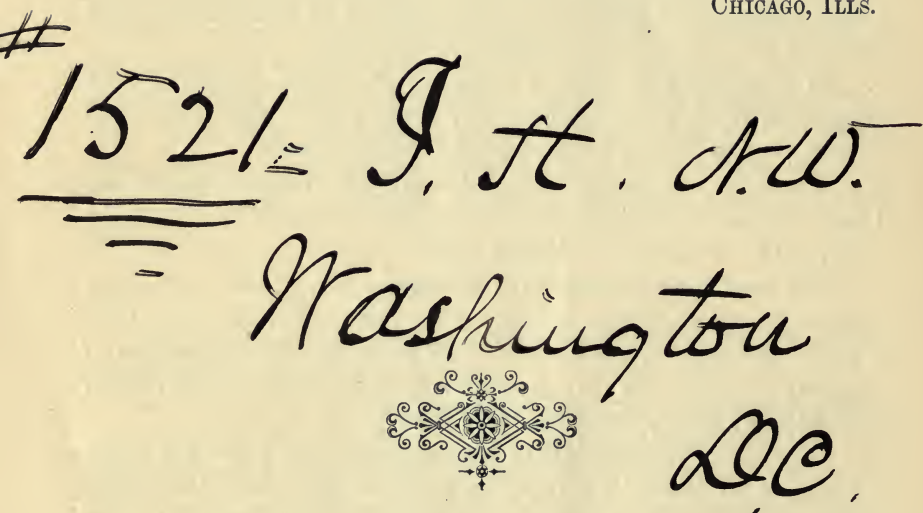 CHICAGO, ILLS.
#
1521= T. St. N.W.
Washington
DC.